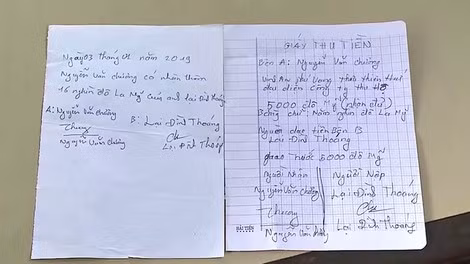 Ngày 03 tháng 01 năm 2019
Nguyễn Văn Chương có nhận thêm
16 nghìn đô La Mỹ Của anh Lại Đình Thoáng
A: Nguyễn Văn Chương
B: Lại Đình Thoáng
Chương
Nguyễn Văn Chương
Lại Đình Thoáng
GIẤY THU TIỀN
Bên A: Nguyễn Văn Chương
đại diện Công ty
5000 đô Mỹ
Bằng chữ: Năm nghìn đô La Mỹ
Người đại diện Bên B
Lại Đình Thoáng
trước 5000 đô Mỹ
Người Nhận
Người Nộp
Nguyễn Văn Chương
Lại Đình Thoáng
Chương
Nguyễn Văn Chương
Lại Đình Thoáng